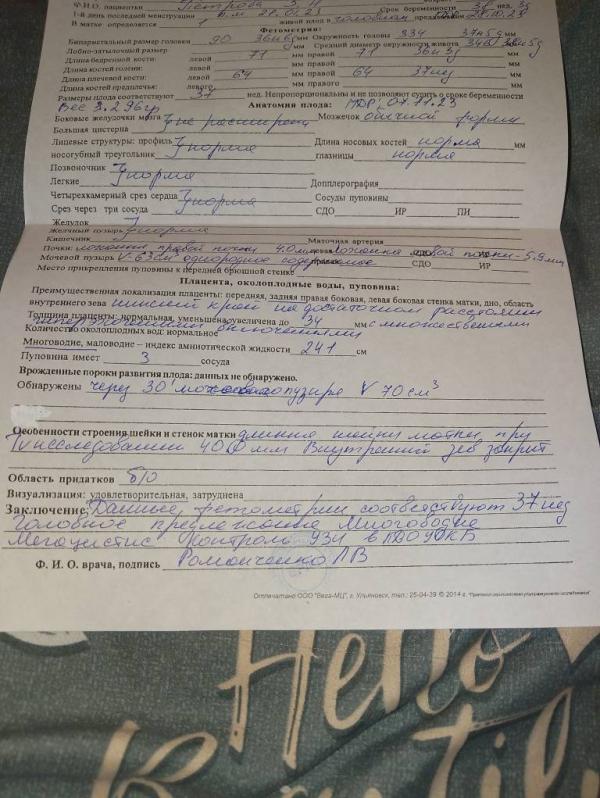 Ф.И.О. пациентки Петрова
1-й день последней менструации Б.м 28.01.23 Срок беременности 38 нед. 3
В матке определяется 1 живой плод в головном предлежании
Фетометрия:
Бипариетальный размер головки 90 36н6д мм Окружность головы 334 37н5д мм
Лобно-затылочный размер мм Средний диаметр/окружность живота
Длина бедренной кости: левой 71 мм правой 71 36н3д мм
Длина костей голени: левой мм правой мм
Длина плечевой кости: левой 64 мм правой 64 37нед мм
Длина костей предплечья: левого мм правого мм
Размеры плода соответствуют 37 нед. Непропорциональны и не позволяют судить о сроке беременности
Вес 3.296гр Анатомия плода:
Боковые желудочки мозга не расширены Мозжечок обычной формы
Большая цистерна
Лицевые структуры: профиль норма Длина носовых костей норма мм
носогубный треугольник глазницы норма
Позвоночник норма
Легкие Допплерография:
Четырехкамерный срез сердца норма Сосуды пуповины
Срез через три сосуда СДО ИР ПИ
Желудок
Желчный пузырь норма
Кишечник Маточная артерия
Почки: лоханки правой почки 4.0мм лоханка левой почки-5.9мм
Мочевой пузырь V-63см однородное содержимое СДО ИР
Место прикрепления пуповины к передней брюшной стенке
Плацента, околоплодные воды, пуповина:
Преимущественная локализация плаценты: передняя, задняя правая боковая, левая боковая стенка матки, дно, область
внутреннего зева нижний край на достаточном расстоянии
Толщина плаценты: нормальная, уменьшена/увеличена до 34 мм с множественными
гиперэхогенными включениями
Количество околоплодных вод: нормальное
Многоводие, маловодие – индекс амниотической жидкости 241 см
Пуповина имеет 3 сосуда
Врожденные пороки развития плода: данных не обнаружено.
Обнаружены через 30' пузыре V 70см³
Особенности строения шейки и стенок матки длинна шейки матки при
TV исследовании 40.0мм Внутренний зев закрыт
Область придатков б/о
Визуализация: удовлетворительная, затруднена
Заключение: Данные фетометрии соответствуют 37нед
Головное предлежание Многоводие
Мегацистис Контроль УЗИ в ПДО УОКБ
Ф. И. О. врача, подпись Романченко ЛВ
Отпечатано ООО "Вега-МЦ", г. Ульяновск, тел.: 25-04-39 © 2014 г.
Hello